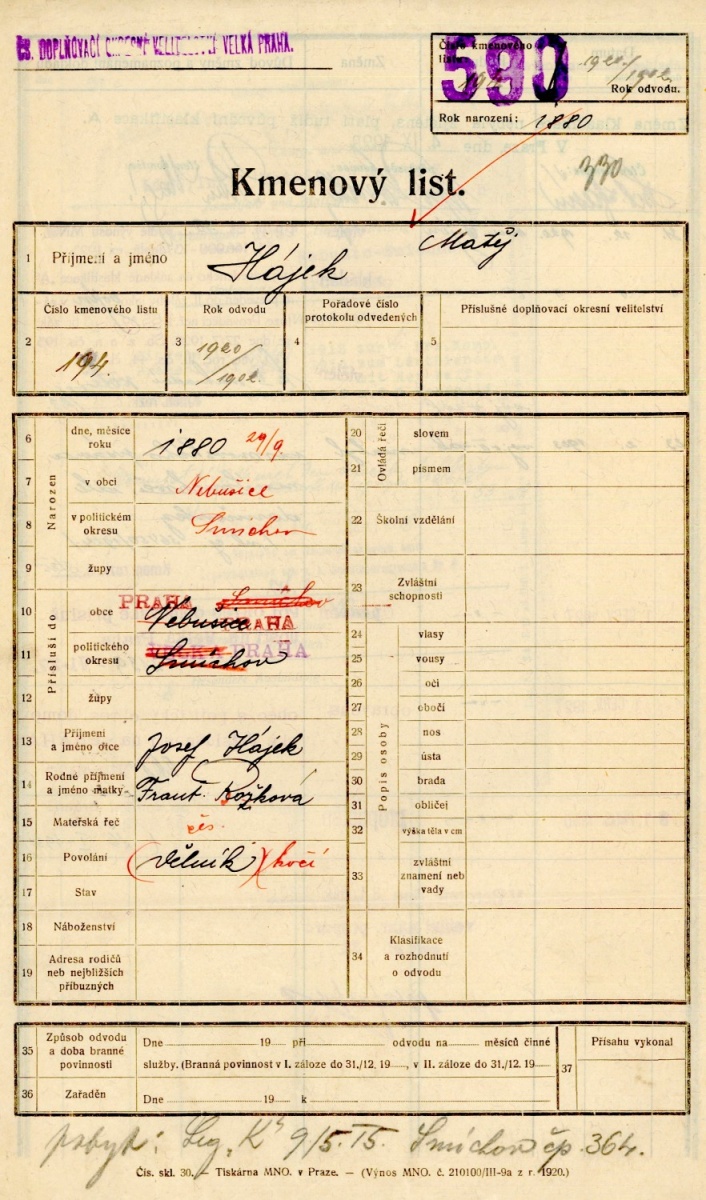 ČS. DOPLŇOVACÍ OKRESNÍ VELITELSTVÍ VELKÁ PRAHA.
Číslo kmenového
listu: 194 1920/1902
590
Rok odvodu.
Rok narození: 1880
330
Kmenový list.
1 Příjmení a jméno Hájek Matěj
Číslo kmenového listu Rok odvodu Pořadové číslo protokolu odvedených Příslušné doplňovací okresní velitelství
2 194. 3 1920/1902 4 5
Narozen
6 dne, měsíce roku 1880 29/9
7 v obci Nebušice
8 v politickém okresu Smíchov
9 župy
Přísluší do
10 obce PRAHA Smíchov Nebušice PRAHA
11 politického okresu VELKÁ PRAHA Smíchov
12 župy
13 Příjmení a jméno otce Josef Hájek
14 Rodné příjmení a jméno matky Frant. Kožková
15 Mateřská řeč čes.
16 Povolání (dělník) kočí
17 Stav
18 Náboženství
19 Adresa rodičů neb nejbližších příbuzných
Ovládá řeči
20 slovem
21 písmem
22 Školní vzdělání
23 Zvláštní schopnosti
Popis osoby
24 vlasy
25 vousy
26 oči
27 obočí
28 nos
29 ústa
30 brada
31 obličej
32 výška těla v cm
33 zvláštní znamení neb vady
34 Klasifikace a rozhodnutí o odvodu
35 Způsob odvodu a doba branné povinnosti Dne 19 při odvodu na měsíců činné
služby. (Branná povinnost v I. záloze do 31./12. 19 , v II. záloze do 31./12. 19
36 Zařaděn Dne 19 k
37 Přísahu vykonal
pobyt: Leg. "K" 9/5. 15. Smíchov čp. 364.
Čís. skl. 30. – Tiskárna MNO. v Praze. – (Výnos MNO. č. 210100/III-9a z r. 1920.)